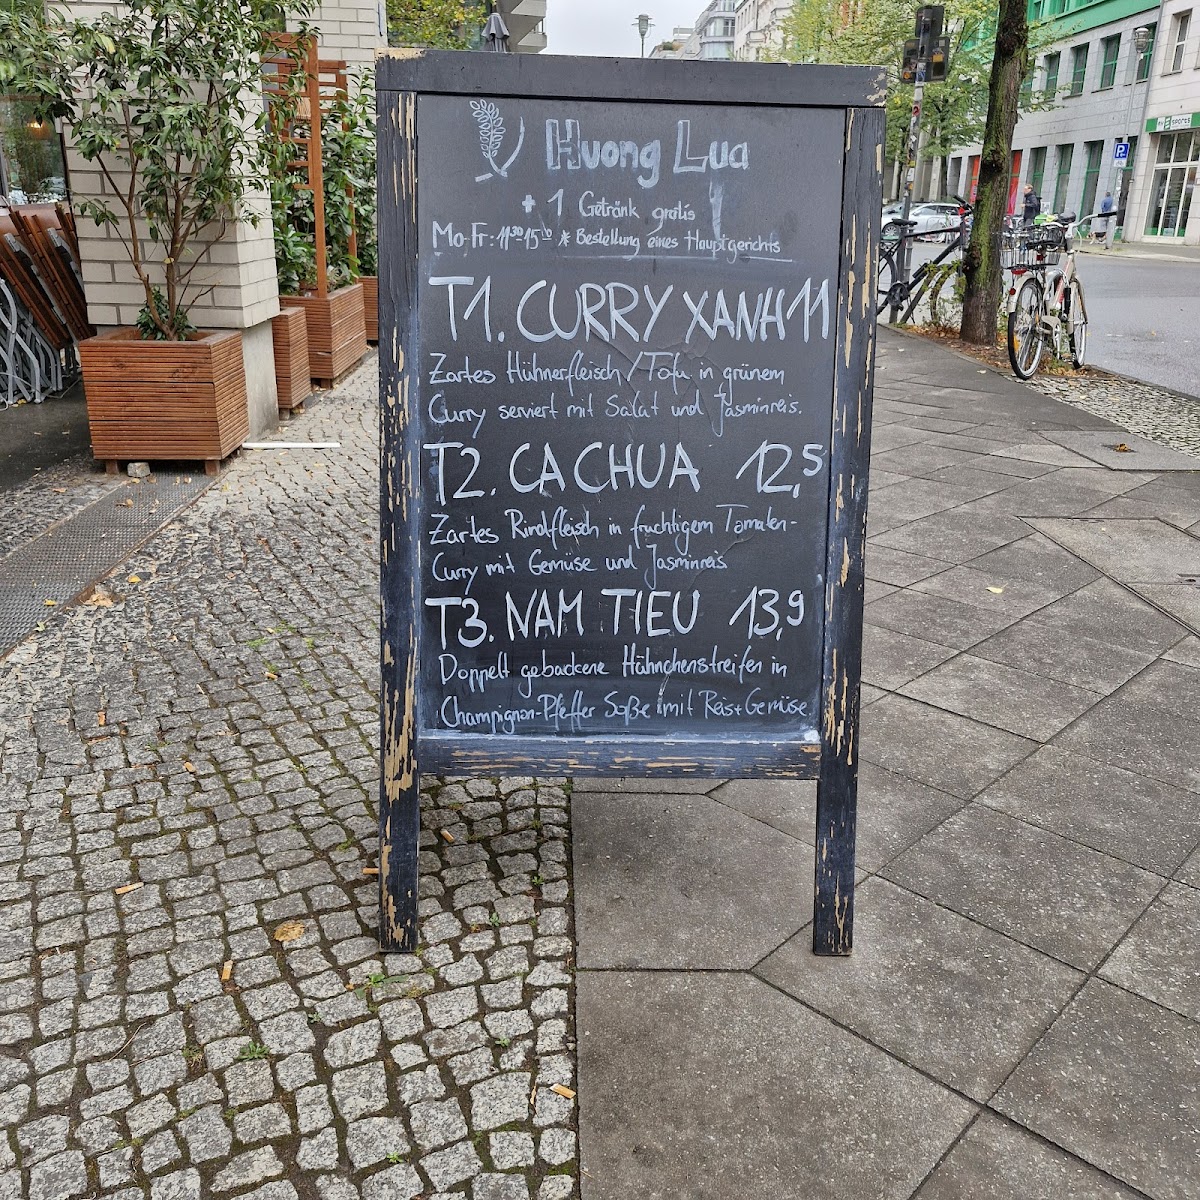 Huong Lua
+ 1 Getränk gratis
Mo-Fr: 11³⁰ 15⁰⁰ * Bestellung eines Hauptgerichts
T1. CURRY XANH 11
Zartes Hühnerfleisch / Tofu in grünem
Curry serviert mit Salat und Jasminreis.
T2. CA CHUA 12,5
Zartes Rindfleisch in fruchtigem Tomaten-
Curry mit Gemüse und Jasminreis
T3. NAM TIEU 13,9
Doppelt gebackene Hähnchenstreifen in
Champignon-Pfeffer Soße mit Reis + Gemüse.
P